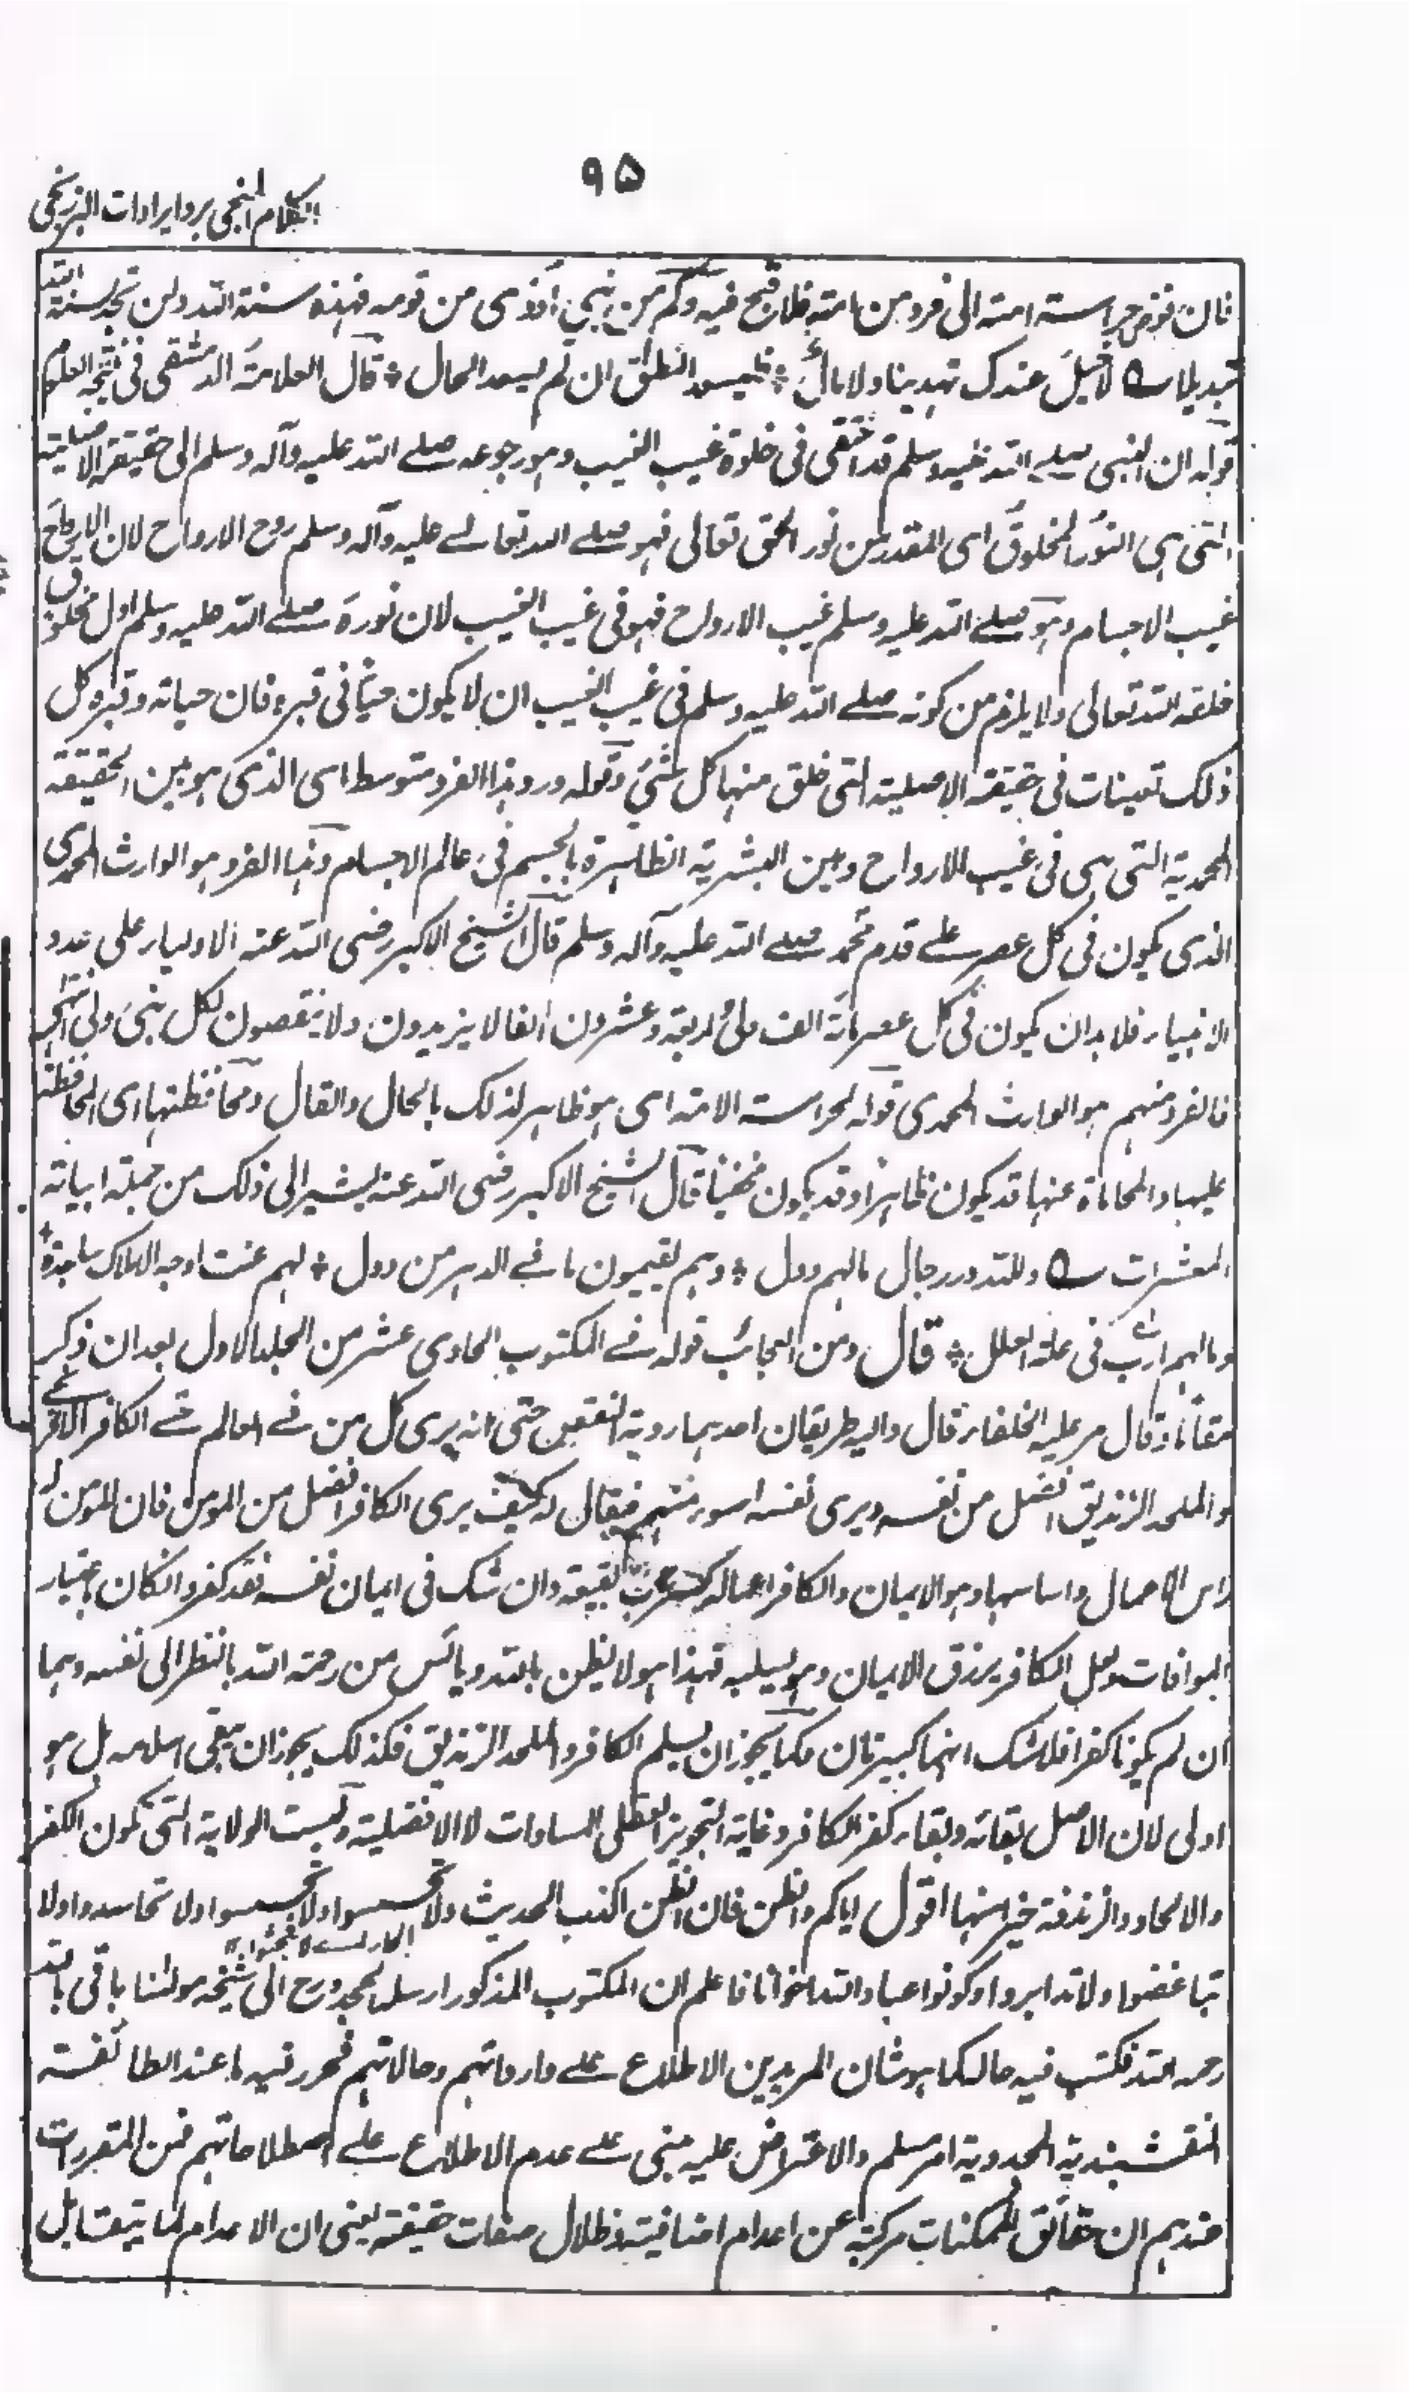 ٩٥
الكلام المنجى برد ايرادات البرزنجى
فان فوض حراسته امته الى فرد من امته فلا قبح فيه وكم من نبي اوذى من قومه فهذه سنة الله ولن تجد لسنة الله
تبديلا لا خيل عندك تهديها ولا مال فليسعد النطق ان لم يسعد الحال قال العلامة الدمشقى فى نتيجة العلوم
قوله ان النبى صلے الله عليه وسلم قد اختفى فى خلوة غيب الغيب وهو رجوعه صلے الله عليه وآله وسلم الى حقيقته الاصلية
التى هى النور المخلوق اى المقدر من نور الحق تعالى فهو صلے الله تعالے عليه وآله وسلم روح الارواح لان الارواح
غيب الاجسام وهو صلے الله عليه وسلم غيب الارواح فهو فى غيب الغيب لان نوره صلے الله عليه وسلم اول مخلوق
خلقه الله تعالى ولا يلزم من كونه صلے الله عليه وسلم فى غيب الغيب ان لا يكون حيا فى قبره فان حياته وقبره كل
ذلك تعينات فى حقيقته الاصلية التى خلق منها كل شئ وقوله ورد هذا الفرد متوسط اى الذى هو بين الحقيقة
المحمدية التى هى فى غيب الارواح وبين البشرية الظاهرة بالجسم فى عالم الاجسام وهذا الفرد هو الوارث المحمدى
الذى يكون فى كل عصر علے قدم محمد صلے الله عليه وآله وسلم قال الشيخ الاكبر رضى الله عنه الاولياء على عدد
الانبياء فلا بد ان يكون فى كل عصر مائة الف ولى اربعة وعشرون الفا لا يزيدون ولا ينقصون لكل نبى ولى انتهى
فالفرد منهم هو الوارث المحمدى قوله لحراسة الامة اى هو ظاهر لذلك بالحال والقال ومحافظتها اى المحافظة
عليها والمحاماة عنها قد يكون ظاهرا وقد يكون مخفيا قال الشيخ الاكبر رضى الله عنه يشير الى ذلك من جملة ابياته
المعشرات ولله در رجال مالهم دول وهم يقيمون ما فے الدهر من دول لهم عنت اوجه الاملاك ساجدة
ومالهم ارب فى علة العلل قال ومن العجائب قوله فے المكتوب الحادى عشر من الجلد الاول بعد ان ذكر
مقاما وقال مر عليه الخلفاء قال واليه طريقان احدهما روية النقص حتى انه يرى كل من فے العالم حتے الكافر الافرنجے
والملحد الزنديق افضل من نفسه ويرى نفسه اسوء منهم فيقال له كيف يرى الكافر افضل من المومن فان للمومن
راس الاعمال واساسها وهو الايمان والكافر اعماله كسراب بقيعة وان شك فى ايمان نفسه فقد كفر وانكان باعتبار
الموافات ولعل الكافر يرزق الايمان وهو يسلبه فهذا هولا يظن بالله ويائس من رحمة الله بالنظر الى نفسه وهما
ان لم يكونا كفرا فلا شك انهما كبيرتان فكما يجوز ان يسلم الكافر والملحد الزنديق فكذلك يجوز ان يبقى اسلامه بل هو
اولى لان الاصل بقائه وبقاء كفر الكافر وغاية التجويز العقلى المساوات لا الافضلية وليست الولاية التى تكون الكفر
والالحاد والزندقة خير منها اقول اياكم والظن فان الظن اكذب الحديث ولا تحسسوا ولا تجسسوا ولا تحاسدوا ولا
تباغضوا ولا تدابروا وكونوا عباد الله اخوانا فاعلم ان المكتوب المذكور ارسله المجدد رح الى شيخه مولنا باقى بالله
رحمه الله فكتب فيه حاله كما هو شان المريدين الاطلاع علے وارداتهم وحالاتهم فحرر فيه ما عند الطائفة
النقشبندية المجددية امر مسلم والاعتراض عليه مبنى علے عدم الاطلاع علے اصطلاحاتهم فمن المقررات
عندهم ان حقائق الممكنات مركبة عن اعدام اضافية وظلال صفات حقيقة يعنى ان الاعدام لما يتقابل